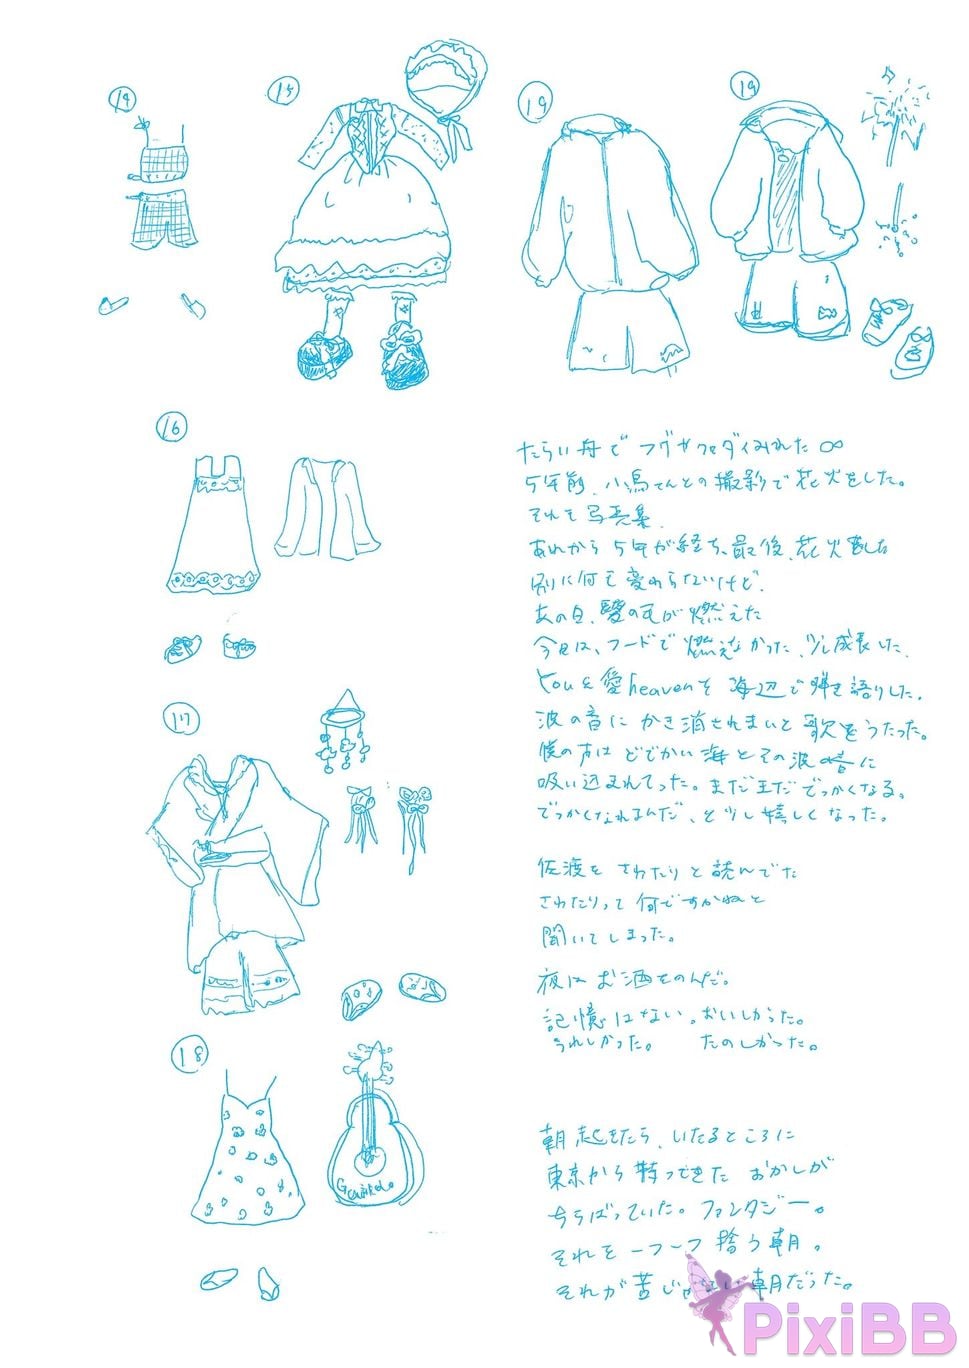 14
15
19
19
16
たらい舟でフグやクロダイみれた∞
5年前、小鳥てんとの撮影で花火をした。
それも写真集、
あれから5年が経ち、最後、花火した
別に何も変わらないけど、
あの日、髪の毛が燃えた
今日は、フードで燃えなかった、少し成長した、
Youを愛heavenを海辺で弾き語りした、
17
波の音にかき消されまいと歌をうたった。
僕の声はどでかい海とその波音に
吸い込まれてった。まだまだでっかくなる。
でっかくなれるんだ、と少し嬉しくなった。
佐渡をさわたりと読んでた
さわたりって何ですかねと
聞いてしまった。
夜はお酒をのんだ。
記憶はない。おいしかった。
うれしかった。 たのしかった。
18
朝起きたら、いたるところに
東京から持ってきたおかしが
ちらばっていた。ファンタジー。
それを一つ一つ拾う朝。
それが苦じゃない朝だった。
PixiBB